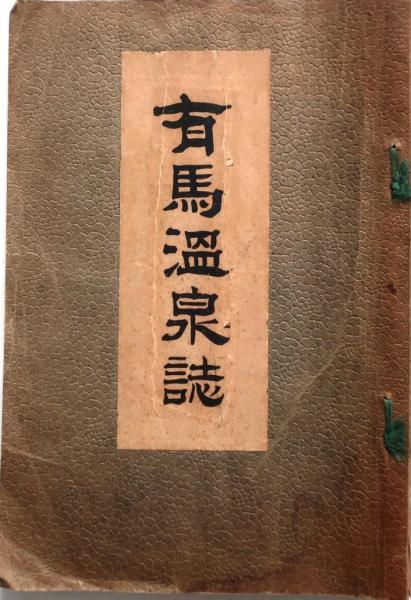 有馬溫泉誌